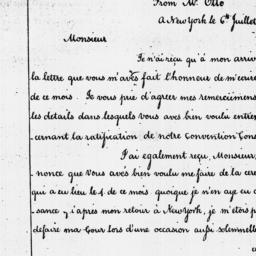 From Mr. Otto
A New York le 6e Juillet
Monsieur
Je n'ai reçu qu'à mon arriv
la lettre que vous m'avés fait l'honneur de m'ecrire
de ce mois. Je vous prie d'agreer mes remerciemens
les details dans lesquels vous aves bien voulu entrer
cernant la ratification de notre Convention Cons
J'ai egalement reçu, Monsieur,
nonce que Vous avés bien voulu me faire de la cere
qui a eu lieu le 4. de ce mois quoique je n'en aye eu c
sance qu'apres mon retour à New York, je m'etois p
defaire ma Cour lors d'une occasion aussi solemnelle